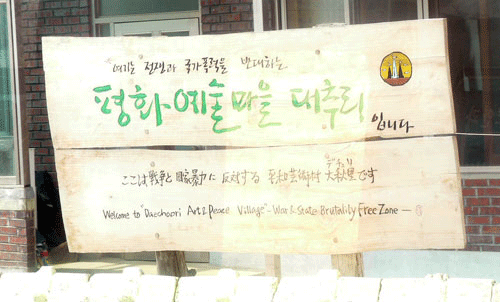 여기는 전쟁과 국가폭력을 반대하는
평화예술마을 대추리 입니다
デチュリ
ここは戦争と国家暴力に反対する 平和芸術村 大秋里です
Welcome to "Daechoori Art & Peace Village" - War & State Brutality Free Zone —